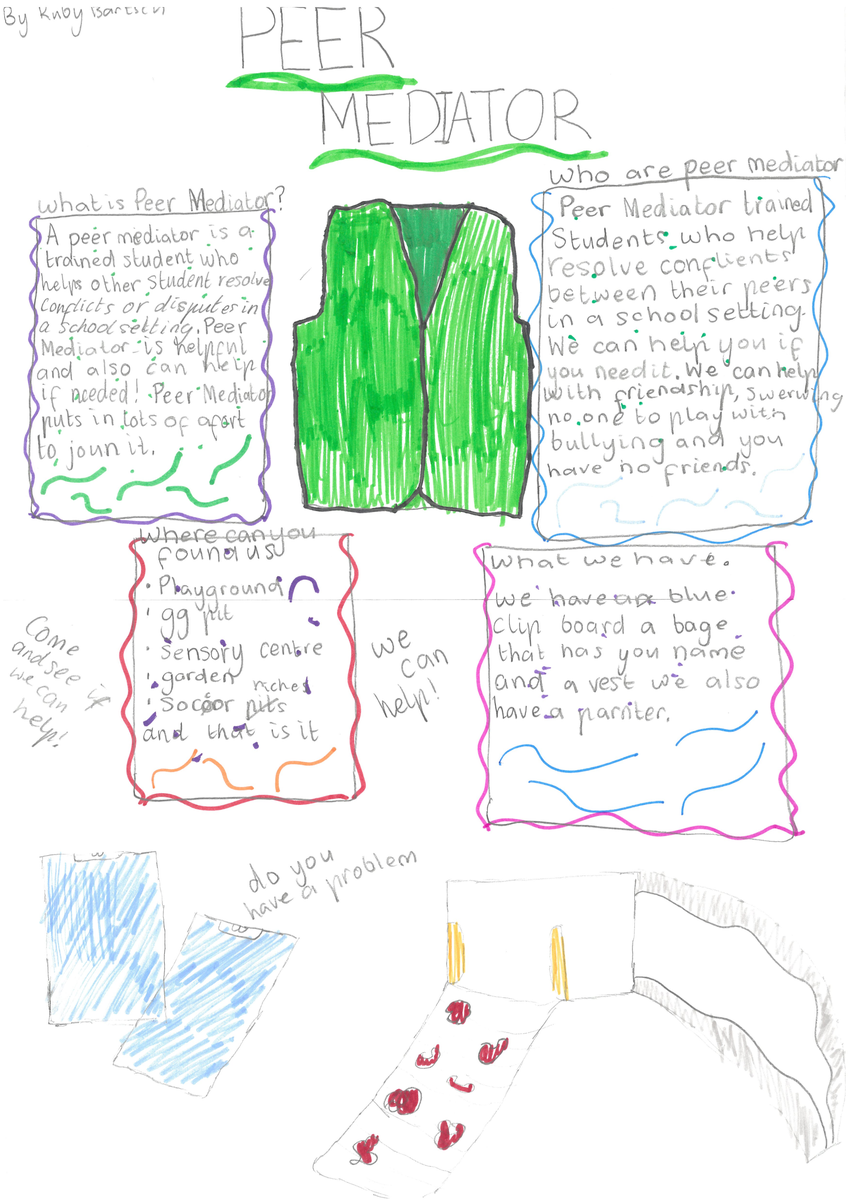 By Ruby Bartsch
PEER
MEDIATOR
what is Peer Mediator?
A peer mediator is a
trained student who
helps other student resolve
conflicts or disputes in
a school setting. Peer
Mediator is helpful
and also can help
if needed! Peer Mediator
puts in lots of afort
to joun it.
who are peer mediator
Peer Mediator trained
Students who help
resolve conflients
between their peers
in a school setting.
We can help you if
you need it. We can help
with friendship, swerwing
no one to play with
bullying and you
have no friends.
Where can you
found us
• Playground
• gg pit
• Sensory centre
• garden
riches
• Soccor pits
and that is it
Come
and see if
we can
help!
we
can
help!
what we have.
we have a blue
clip board a bage
that has you name
and a vest we also
have a parnter.
do you
have a problem